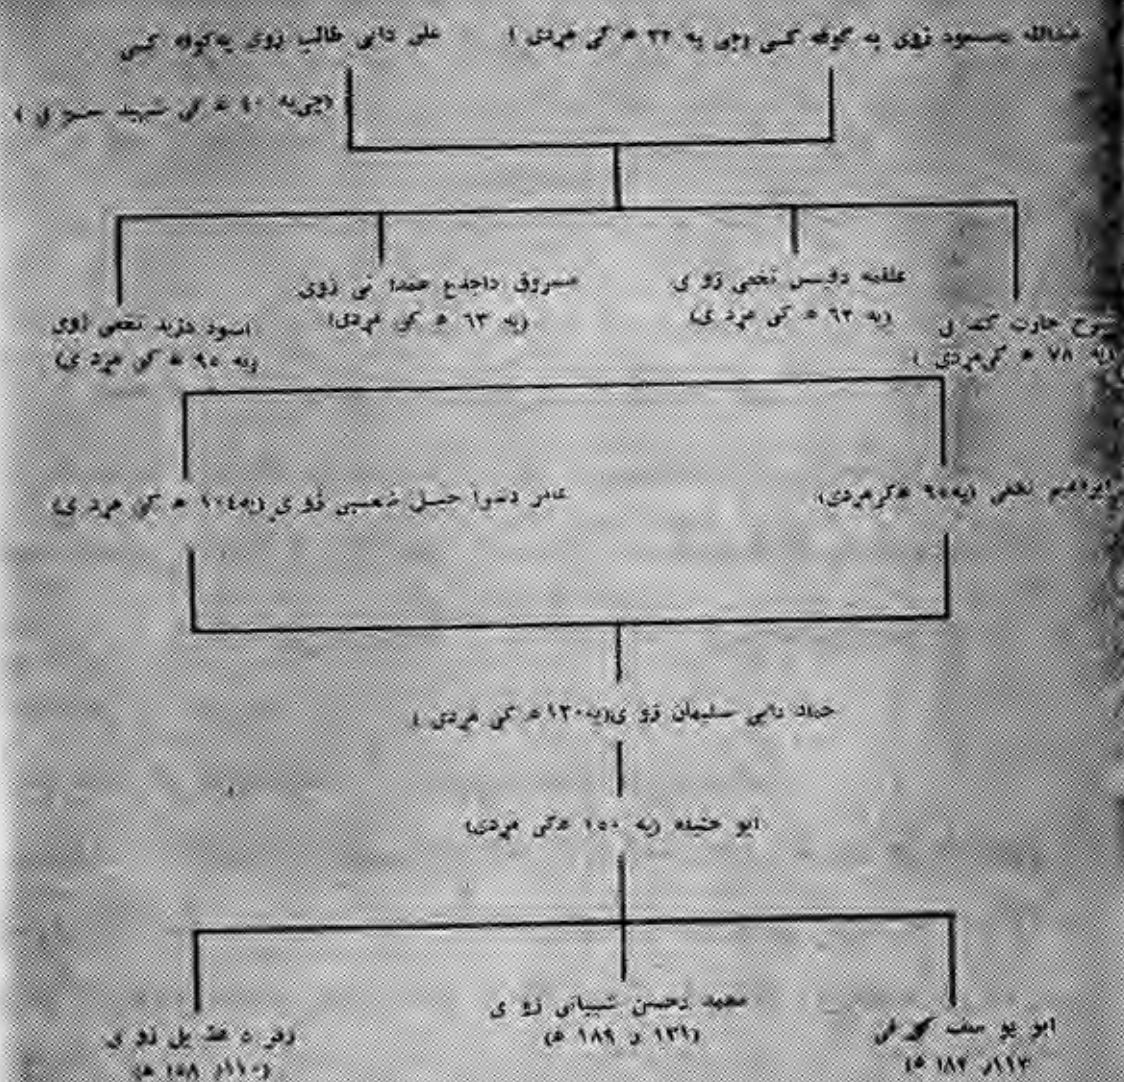 عبدالله دمسعود زوی په کوفه کسی (چی په ۳۲ ه کی مړدی)
علی دابی طالب زوی په کوفه کسی
(چی په ۴۰ ه کی شهید سوی)
حارث کندی
(په ۷۸ ه کی مړدی)
علقمه دقیس نخعی زوی
(په ۶۲ ه کی مړدی)
مسروق داجدع همدانی زوی
(په ۶۳ ه کی مړدی)
اسود دیزید نخعی زوی
(په ۹۵ ه کی مړدی)
ابراهیم نخعی (په ۹۵ ه کی مړدی)
عامر دشراحیل شعبی زوی (په ۱۰۴ ه کی مړدی)
حماد دابی سلیمان زوی (په ۱۲۰ ه کی مړدی)
ابو حنیفه (په ۱۵۰ ه کی مړدی)
ابو یوسف کوفی
۱۱۳ او ۱۸۲ ه)
محمد دحسن شیبانی زوی
(۱۳۱ او ۱۸۹ ه)
زفر د هذیل زوی
(۱۱۰ او ۱۵۸ ه)